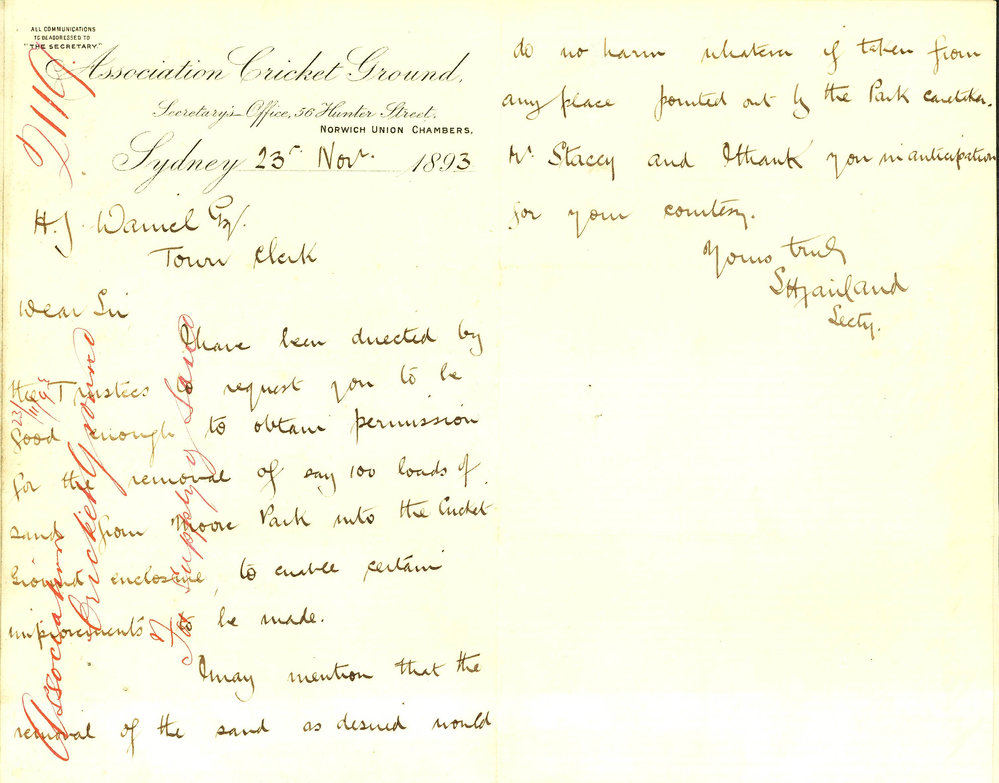 ALL COMMUNICATIONS
TO BE ADDRESSED TO
"THE SECRETARY"
Association Cricket Ground,
Secretary's Office, 56 Hunter Street,
NORWICH UNION CHAMBERS,
Sydney 23r Nov. 1893
H. J. Daniel Esq.
Town Clerk
Dear Sir
I have been directed by
the Trustees to request you to be
good enough to obtain permission
for the removal of say 100 loads of
sand from Moore Park into the Cricket
Ground enclosure, to enable certain
improvements to be made.
I may mention that the
removal of the sand as desired would
do no harm whatever if taken from
any place pointed out by the Park caretaker.
Mr. Stacey and I thank you in anticipation
for your courtesy.
Yours truly
S H Fairland
Secty.
2116
Association
Cricket Ground
23/11/93
For supply of sand